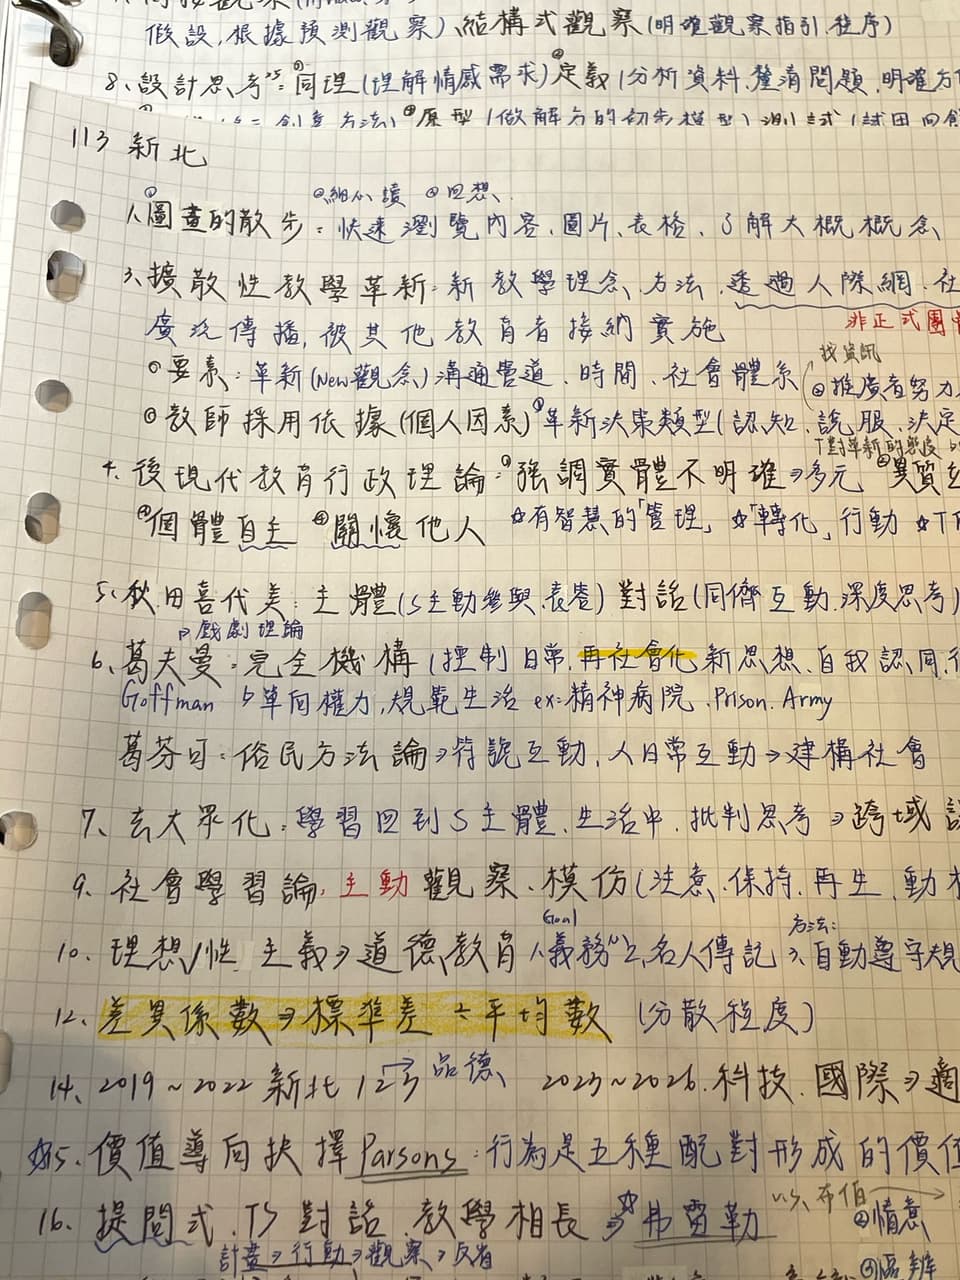 假設，根據預測觀察)、結構式觀察(明確觀察指引、程序)
8、設計思考²⁵：①同理(理解情感需求)②定義(分析資料、釐清問題，明確方
④原型(做解方的初步模型)
113 新北
②細心讀 ③回想
1、①圖畫的散步：快速瀏覽內容、圖片、表格，了解大概概念
3、擴散性教學革新：新教學理念、方法，透過人際網、社
廣泛傳播，被其他教育者接納實施
非正式團
找資訊
①要素：革新(New觀念)溝通管道、時間、社會體系
④推廣者努力
②教師採用依據(個人因素)③革新決策類型(認知、說服、決定
對革新的態度
4、後現代教育行政理論：①強調實體不明確⇒多元 ②異質
③個體自主 ④關懷他人 ☆有智慧的「管理」 ☆「轉化」行動
5、秋田喜代美：主體(S主動參與、表達)對話(同儕互動、深度思考)
↱戲劇理論
6、葛夫曼：完全機構(控制日常，再社會化新思想、自我認同、
Goffman ↳單向權力，規範生活 ex:精神病院、Prison、Army
葛芬可：俗民方法論⇒符號互動，人日常互動⇒建構社會
7、去大眾化：學習回到S主體、生活中，批判思考⇒跨域
9、社會學習論：主動觀察、模仿(注意、保持、再生、動
Goal
方法：
10、理想/性 主義⇒道德教育 1、義務心 2、名人傳記 3、自動遵守規
12、差異係數⇒標準差÷平均數 (分散程度)
14、2019~2022 新北 123 品德、 2023~2026、科技、國際⇒適
☆15、價值導向抉擇Parsons：行為是五種配對形成的價值
v.s. 布伯
16、提問式、TS對話、教學相長⇒☆弗雷勒 ②情意
計畫⇒行動⇒觀察⇒反省